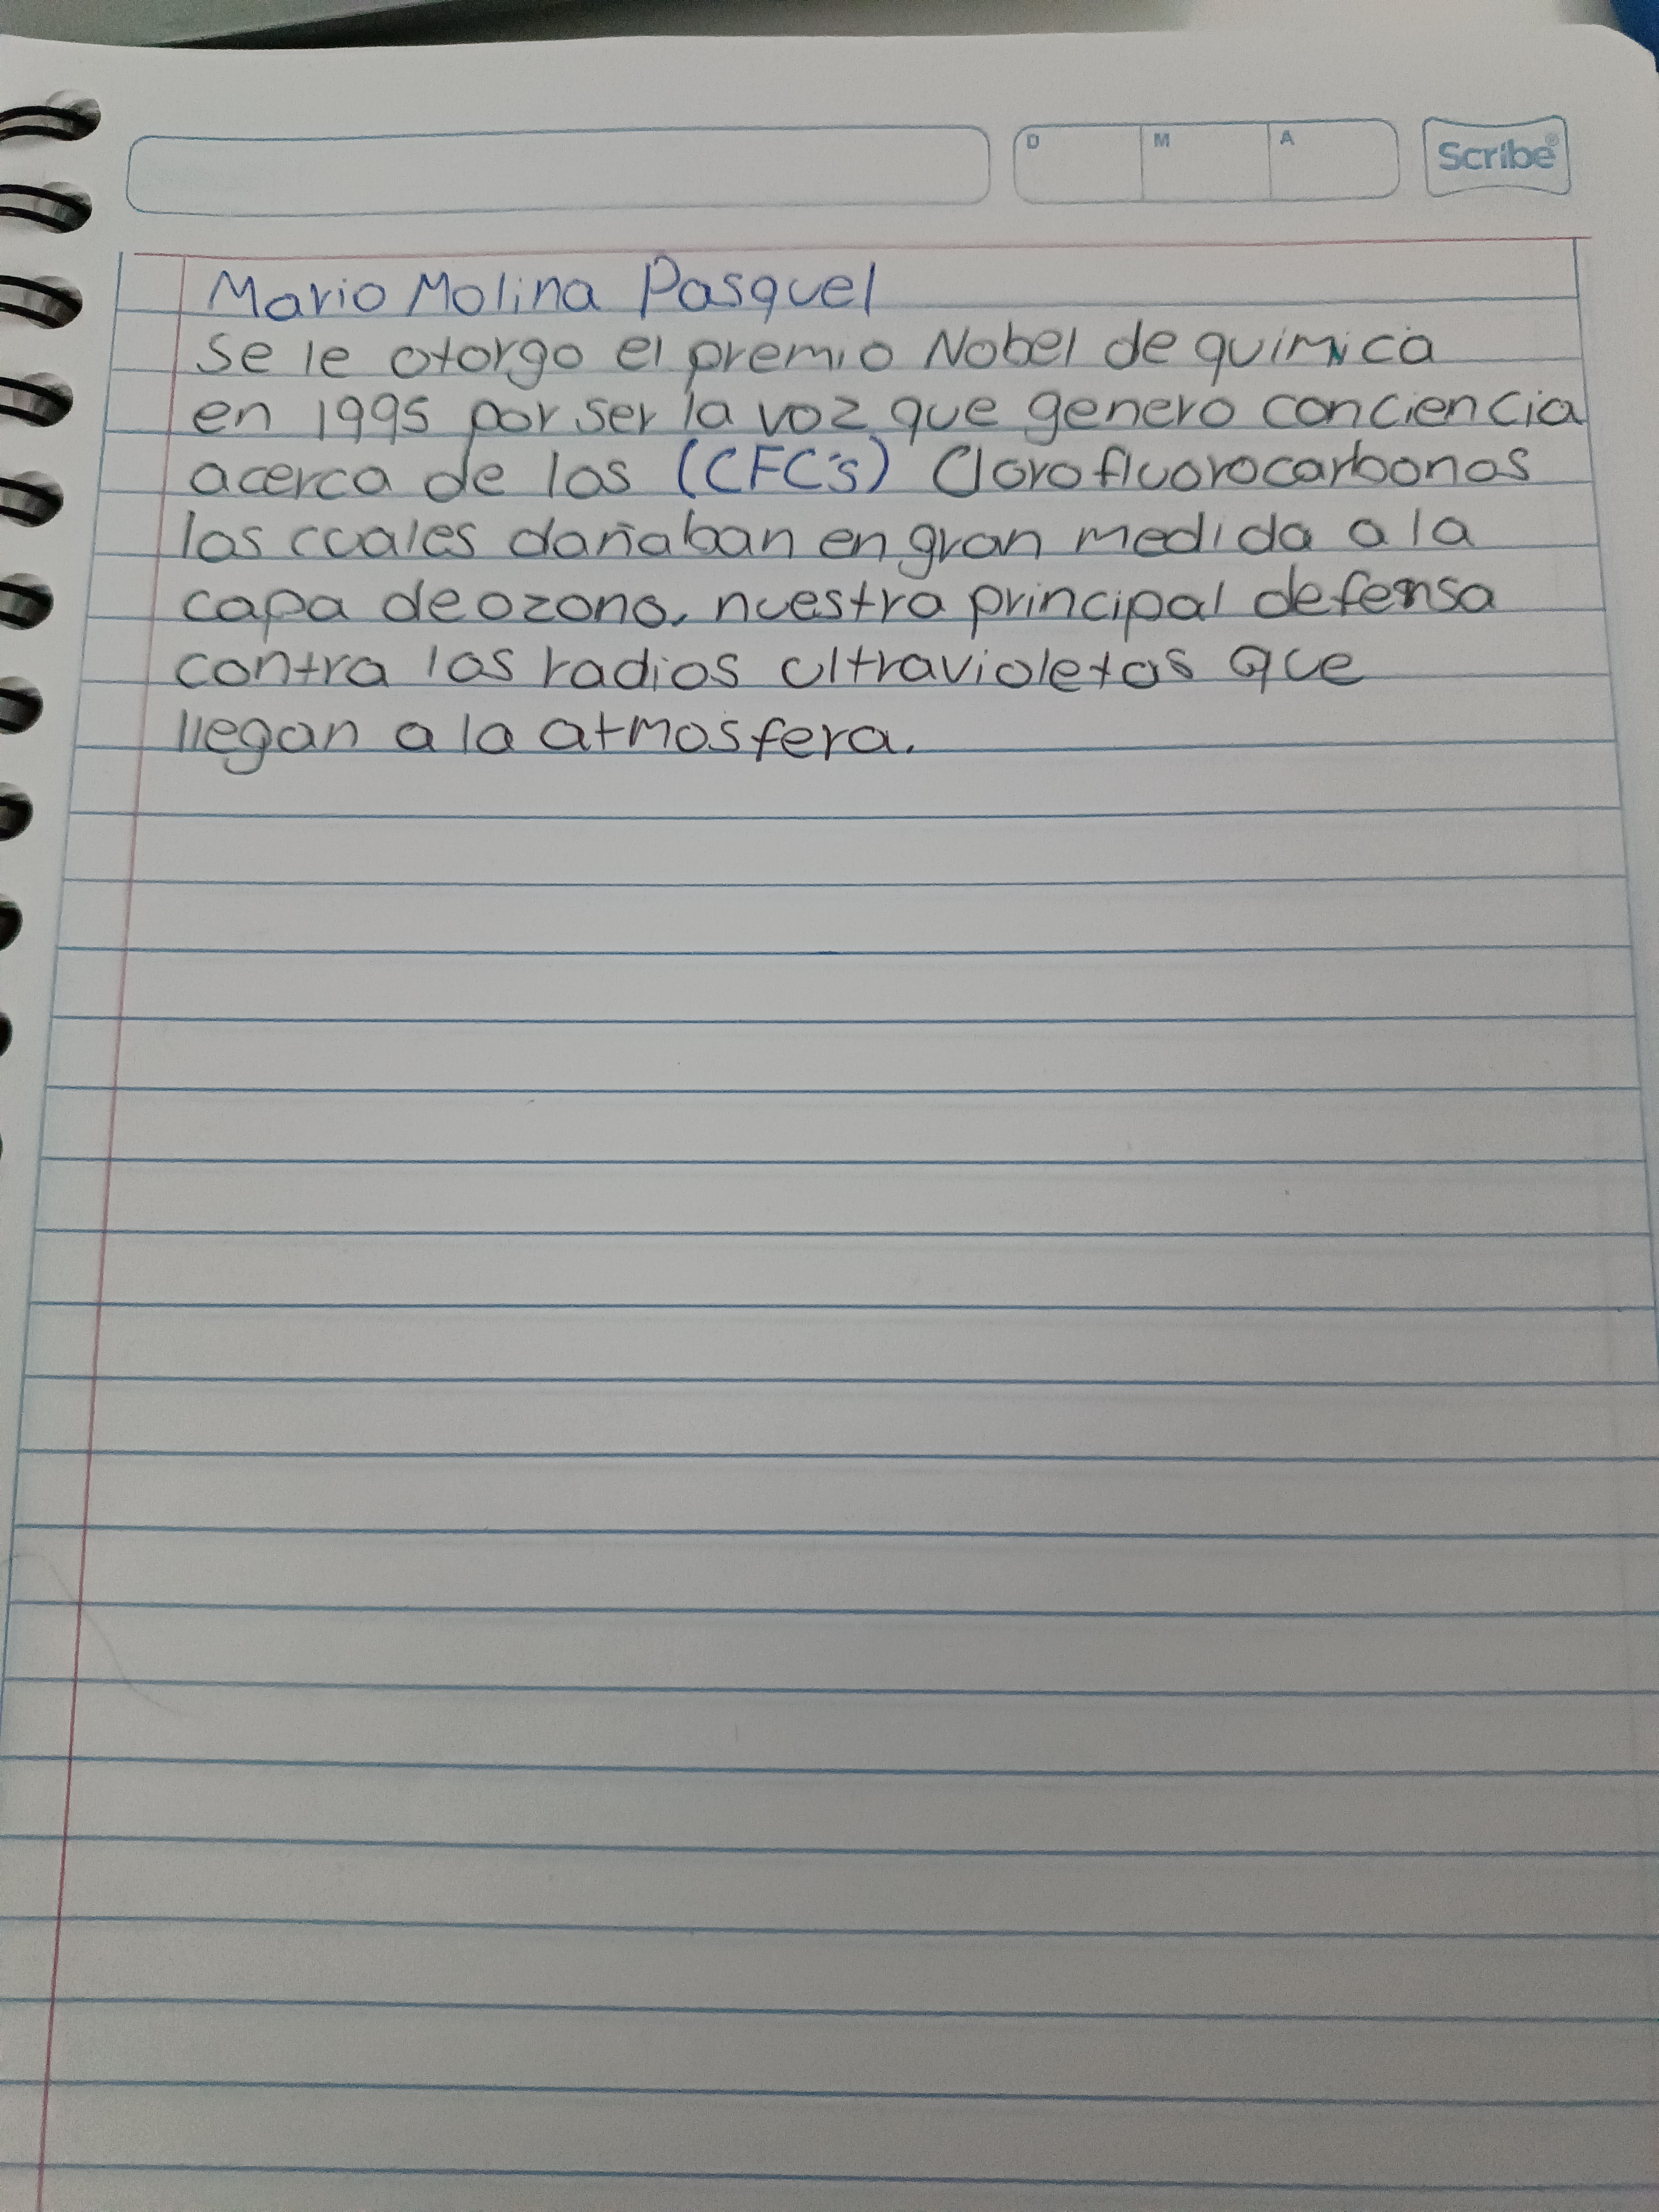 D M A Scribe®
Mario Molina Pasquel
Se le otorgo el premio Nobel de quimica
en 1995 por ser la voz que genero conciencia
acerca de los (CFC's) Clorofluorocarbonos
los cuales dañaban en gran medida a la
capa de ozono, nuestra principal defensa
contra los radios ultravioletas que
llegan a la atmosfera.